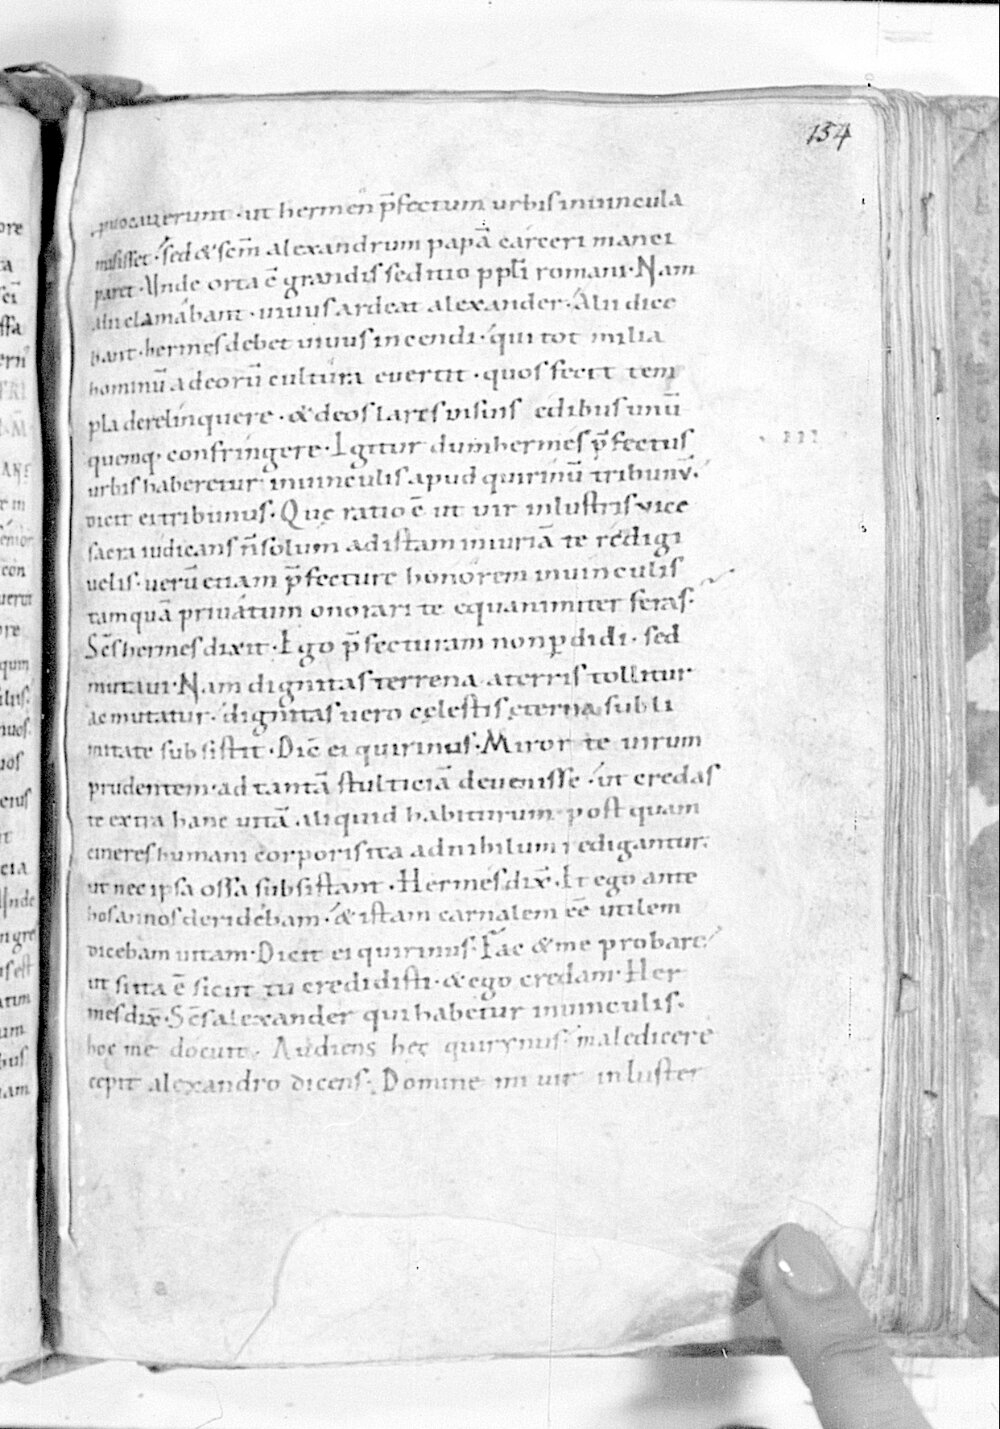 154
puocauerunt · ut hermen p̄fectum urbis inuincula
misisset · sed & sc̄m alexandrum papā carceri manci
paret · Unde orta ē grandis seditio ppl̄i romani · Nam
alii clamabant · uiuus ardeat alexander · Alii dice
bant · hermes debet uiuus incendi · qui tot milia
hominū a deorū cultura euertit · quos fecit tem
pla derelinquere · & deos lares in suis edibus unū
quemq· confringere · Igitur dum hermes p̄fectus
urbis haberetur inuinculis apud quirinū tribunū·
dicit ei tribunus · Quę ratio ē ut uir inlustris uice
sacra iudicans n̄ solum ad istam iniuriā te redigi
uelis · uerū etiam p̄fecture honorem inuinculis
tamquā priuatum onorari te equanimiter feras·
Sc̄s hermes dixit · Ego p̄fecturam non pdidi · sed
mutaui · Nam dignitas terrena a terris tollitur
ac mutatur · dignitas uero cęlestis ęterna subli
mitate subsistit · Dic̄ ei quirinus · Miror te uirum
prudentem · ad tantā stulticiā deuenisse · ut credas
te extra hanc uitā · aliquid habiturum post quam
cineres humani corporis ita ad nihilum rediguntur·
ut nec ipsa ossa subsistant · Hermes dix̄ · Et ego ante
hos annos deridebam · & istam carnalem eē utilem
dicebam uitam · Dicit ei quirinus · Fac & me probare
ut si ita ē sicut tu credidisti · & ego credam · Her
mes dix̄ · Sc̄s alexander qui habetur inuinculis·
hoc me docuit · Audiens hec quirynus · maledicere
cepit alexandro dicens · Domine mi uir inluster